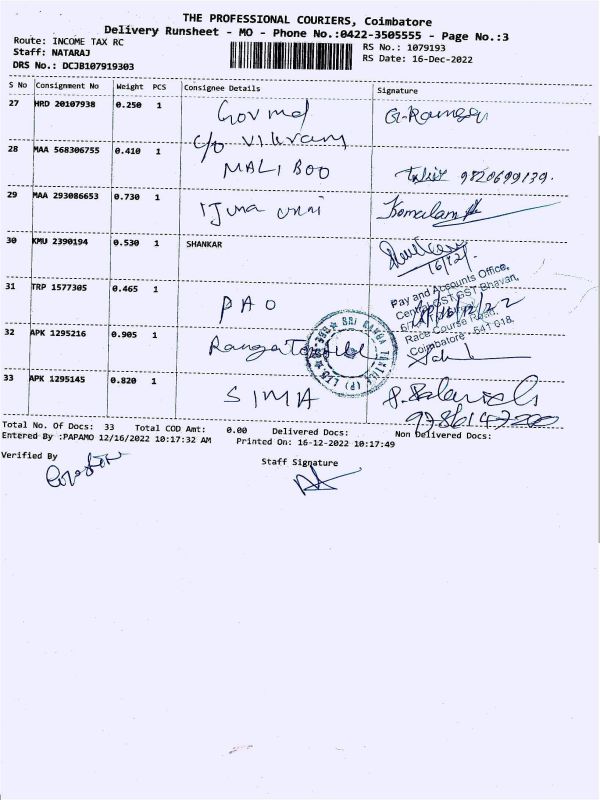 THE PROFESSIONAL COURIERS, Coimbatore
Delivery Runsheet - MO - Phone No.:0422-3505555 - Page No.:3
Route: INCOME TAX RC
RS No.: 1079193
Staff: NATARAJ
RS Date: 16-Dec-2022
DRS No.: DCJB107919303
S No Consignment No Weight PCS Consignee Details Signature
27 HRD 20107938 0.250 1 Govind
c/o vikram
28 MAA 568306755 0.410 1 MALIBOO 9820699139.
29 MAA 293086653 0.730 1
30 KMU 2390194 0.530 1 SHANKAR
16/12/
31 TRP 1577305 0.465 1 PAO
Pay and Accounts Office,
Central GST, GST Bhavan,
Race Course Road,
Coimbatore - 641 018.
32 APK 1295216 0.905 1
SRI RANGA TEXTILES (P) LTD
33 APK 1295145 0.820 1 SIMA
Total No. Of Docs: 33 Total COD Amt: 0.00 Delivered Docs: Non Delivered Docs:
Entered By :PAPAMO 12/16/2022 10:17:32 AM Printed On: 16-12-2022 10:17:49
Verified By
Staff Signature